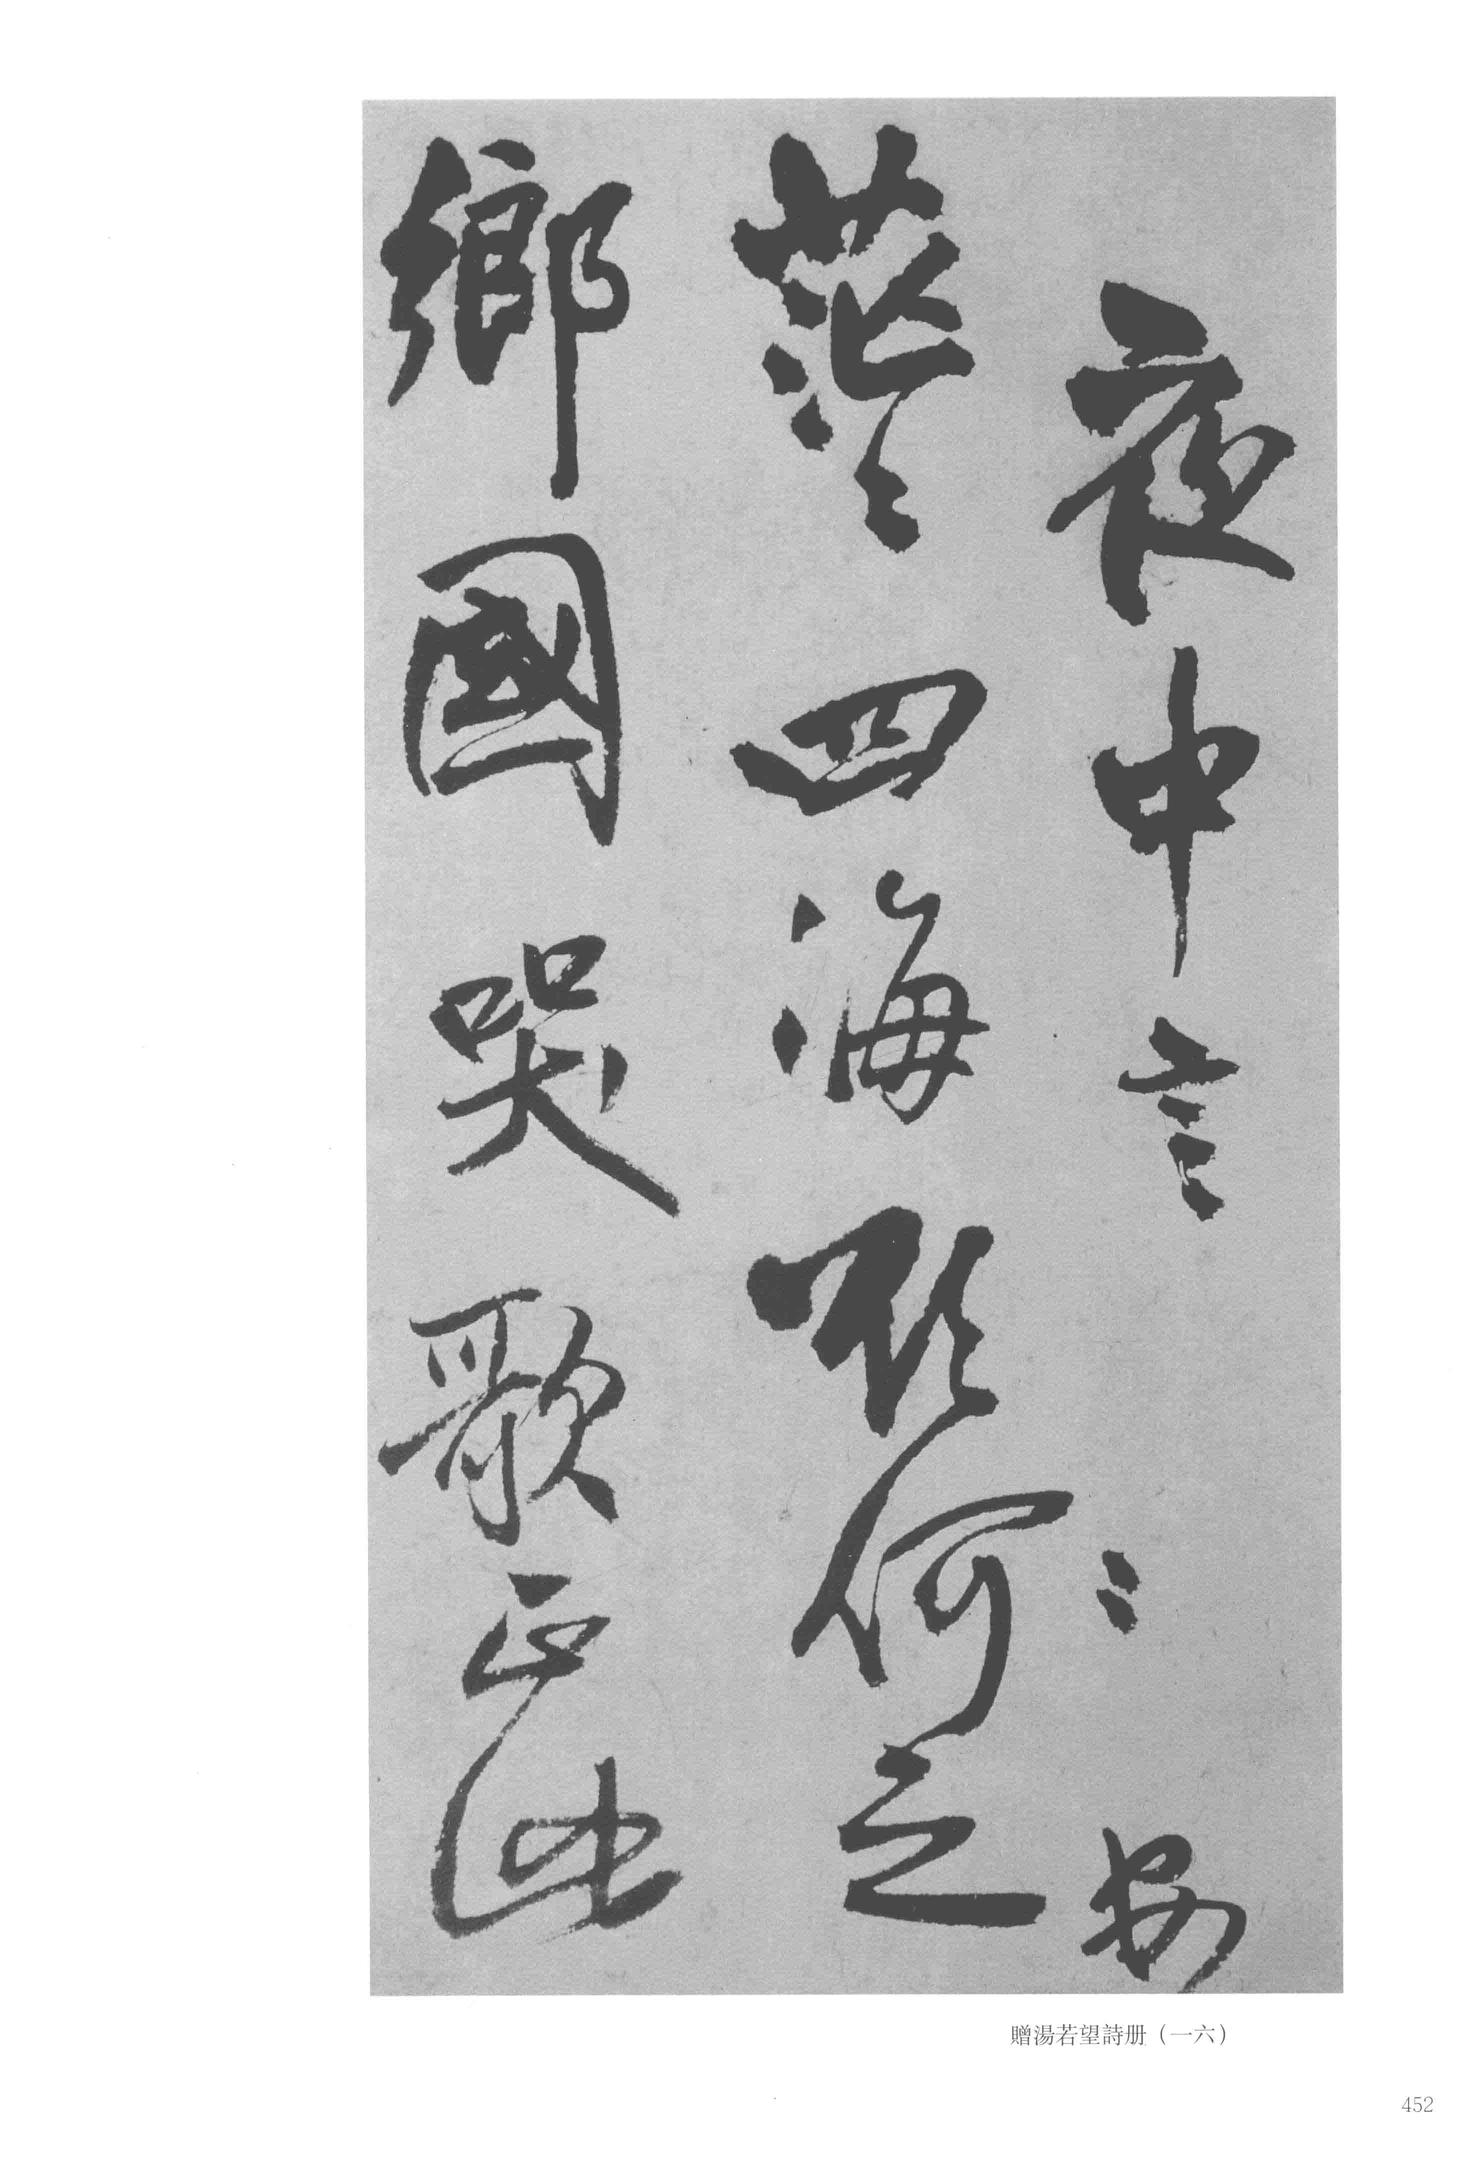 夜中言
茫茫四海何之
鄉國哭歌正
贈湯若望詩册（一六）
452